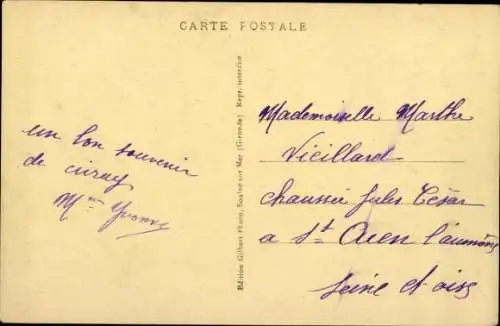 CARTE POSTALE
un bon souvenir
de
Mme Yvonne
Edition Gilbert Photo, Soulac sur Mer (Gironde) Repr. interdite
Mademoiselle Marthe
Vieillard
chaussée Jules César
a St Ouen l'aumône
Seine et oise